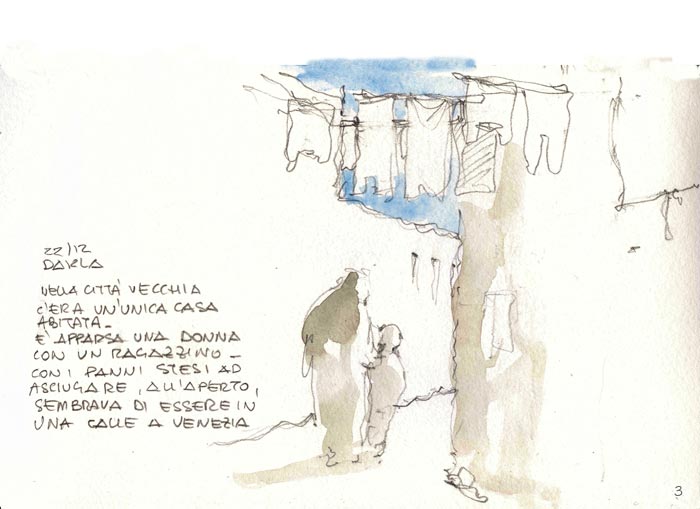 22/12
DAKLA
NELLA CITTÀ VECCHIA
C'ERA UN'UNICA CASA
ABITATA_
È APPARSA UNA DONNA
CON UN RAGAZZINO_
CON I PANNI STESI AD
ASCIUGARE, ALL'APERTO,
SEMBRAVA DI ESSERE IN
UNA CALLE A VENEZIA
3